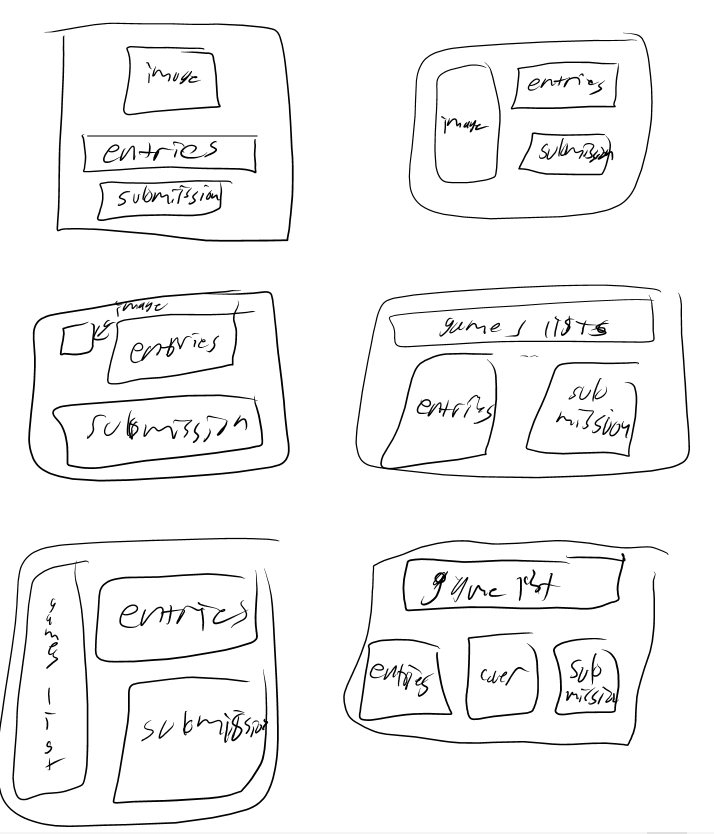 image
entries
submission
image
entries
submission
image
entries
submission
games lists
entries
sub
mission
games list
entries
submission
game list
entries
cover
sub
mission